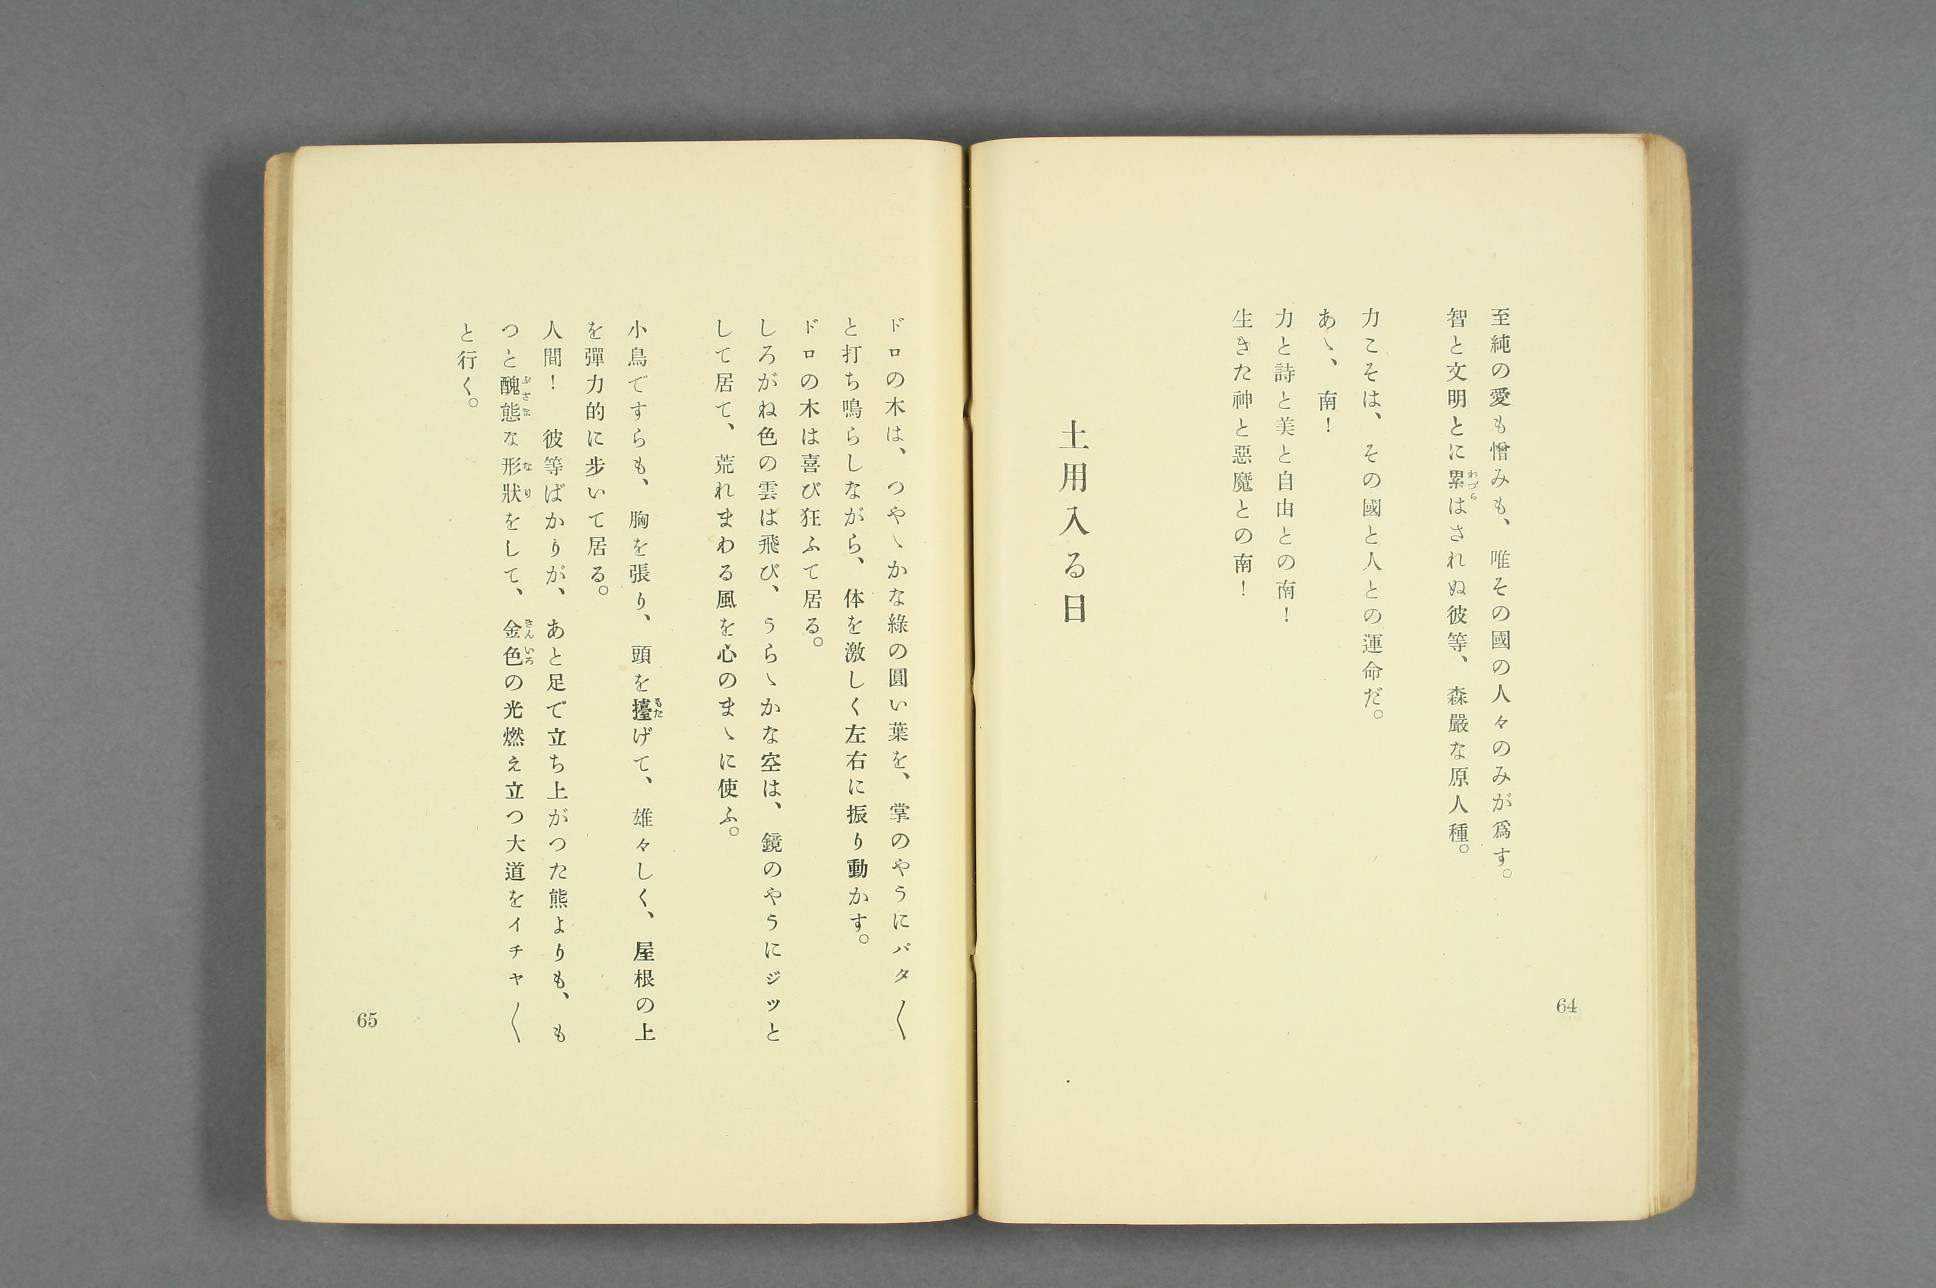 至純の愛も憎みも、唯その國の人々のみが爲す。
智と文明とに累はされぬ彼等、森嚴な原人種。
わづら
力こそは、その國と人との運命だ。
あゝ、南！
力と詩と美と自由との南！
生きた神と惡魔との南！
土用入る日
64
ドロの木は、つやゝかな綠の圓い葉を、掌のやうにバタ〱
と打ち鳴らしながら、体を激しく左右に振り動かす。
ドロの木は喜び狂ふて居る。
しろがね色の雲は飛び、うらゝかな空は、鏡のやうにジッと
して居て、荒れまわる風を心のまゝに使ふ。
小鳥ですらも、胸を張り、頭を擡げて、雄々しく、屋根の上
もた
を彈力的に步いて居る。
人間！　彼等ばかりが、あと足で立ち上がつた熊よりも、も
つと醜態な形狀をして、金色の光燃え立つ大道をイチャ〱
ぶさま なり きんいろ
と行く。
65